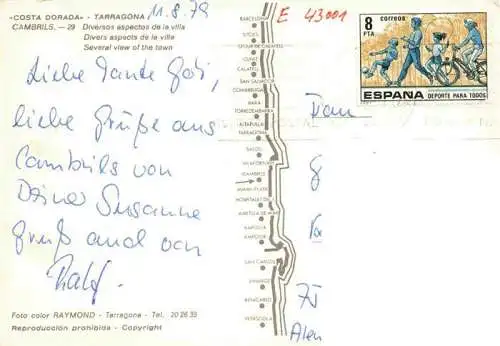 «COSTA DORADA» - TARRAGONA
CAMBRILS. — 29 Diversos aspectos de la villa
Divers aspects de la ville
Several view of the town
11.8.79
Liebe Tante Gabi,
liebe Grüße aus
Cambrils von
Deiner Susanne
Gruß auch von
Ralf.
Foto color RAYMOND - Tarragona - Tel. 20 26 35
Reproducción prohibida - Copyright
BARCELONA
SITGES
CUNIT
CALAFELL
SAN SALVADOR
COMARRUGA
TORREDEMBARRA
ALTAFULLA
TARRAGONA
SALOU
CAMBRILS
MIAMI-PLAYA
AMETLLA DE MAR
AMPOLLA
AMPOSTA
SAN CARLOS
VINAROZ
BENICARLO
PEÑISCOLA
E 43001
8
PTA
correos
ESPAÑA DEPORTE PARA TODOS